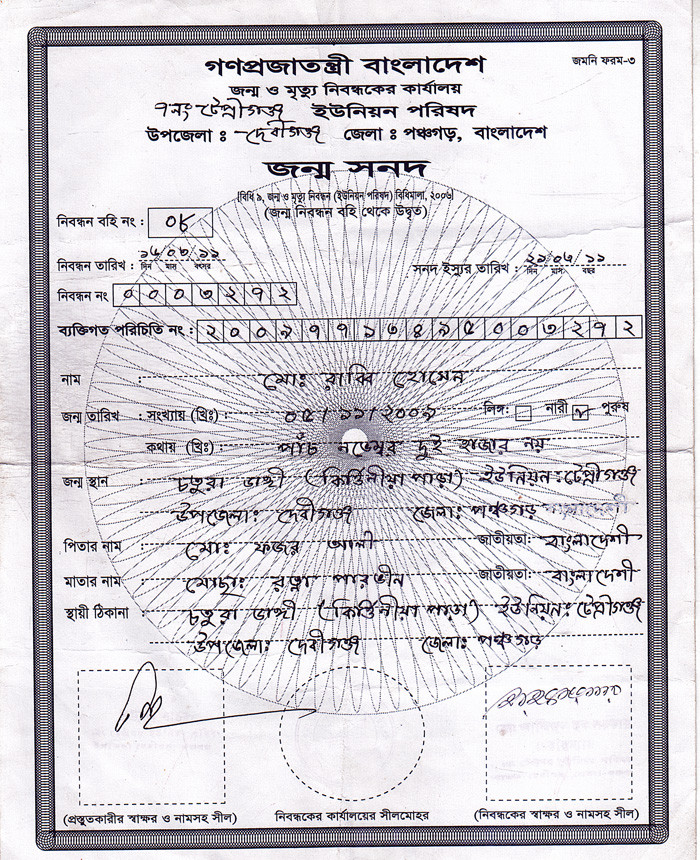 গণপ্রজাতন্ত্রী বাংলাদেশ
জমনি ফরম-৩
জন্ম ও মৃত্যু নিবন্ধকের কার্যালয়
৭নং টেপ্রীগঞ্জ ইউনিয়ন পরিষদ
উপজেলা : দেবীগঞ্জ জেলা : পঞ্চগড়, বাংলাদেশ
জন্ম সনদ
[বিধি ৯, জন্ম ও মৃত্যু নিবন্ধন (ইউনিয়ন পরিষদ) বিধিমালা, ২০০৬]
(জন্ম নিবন্ধন বহি থেকে উদ্ধৃত)
নিবন্ধন বহি নং :
নিবন্ধন তারিখ :
দিন মাস বৎসর
সনদ ইস্যুর তারিখ :
দিন মাস বছর
নিবন্ধন নং ০০০৩২৭২
ব্যক্তিগত পরিচিতি নং : ২০০৯৭৭১৩৪৯৫০০৩২৭২
নাম : মোঃ রাব্বি হোসেন
জন্ম তারিখ : সংখ্যায় (খ্রিঃ) : ০৫/১১/২০০৯ লিঙ্গ: নারী পুরুষ
কথায় (খ্রিঃ) : পাঁচ নভেম্বর দুই হাজার নয়
জন্ম স্থান : চতুরা ডাঙ্গী (কির্ত্তিনীয়া পাড়া) ইউনিয়ন: টেপ্রীগঞ্জ
উপজেলা: দেবীগঞ্জ জেলা: পঞ্চগড়
পিতার নাম : মোঃ ফজর আলী জাতীয়তা: বাংলাদেশী
মাতার নাম : মোছাঃ রত্না পারভীন জাতীয়তা: বাংলাদেশী
স্থায়ী ঠিকানা : চতুরা ডাঙ্গী (কির্ত্তিনীয়া পাড়া) ইউনিয়ন: টেপ্রীগঞ্জ
উপজেলা: দেবীগঞ্জ জেলা: পঞ্চগড়
(প্রস্তুতকারীর স্বাক্ষর ও নামসহ সীল)
নিবন্ধকের কার্যালয়ের সীলমোহর
(নিবন্ধকের স্বাক্ষর ও নামসহ সীল)